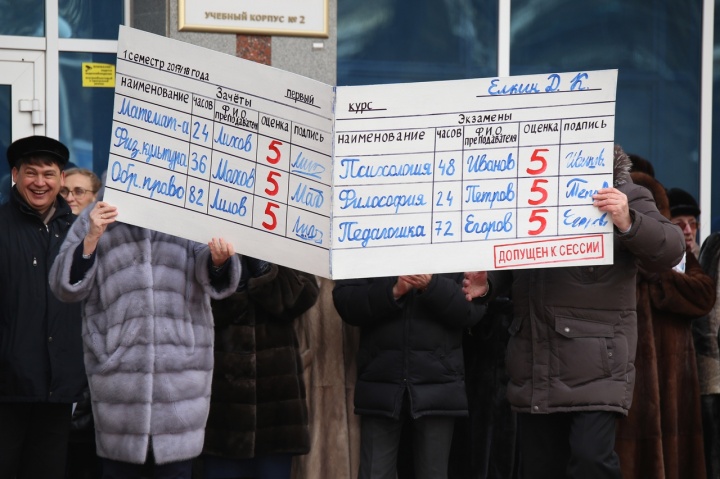 УЧЕБНЫЙ КОРПУС № 2
1 семестр 2017/18 года
Зачёты
первый
наименование часов Ф.И.О. преподавателя оценка подпись
Математ-а 24 Лихов 5
Физ.культура 36 Махов 5
Обр. право 82 Лилов 5
курс
Елкин Д. К.
Экзамены
наименование часов Ф.И.О. преподавателя оценка подпись
Психология 48 Иванов 5
Философия 24 Петров 5
Педагогика 72 Егоров 5
ДОПУЩЕН К СЕССИИ